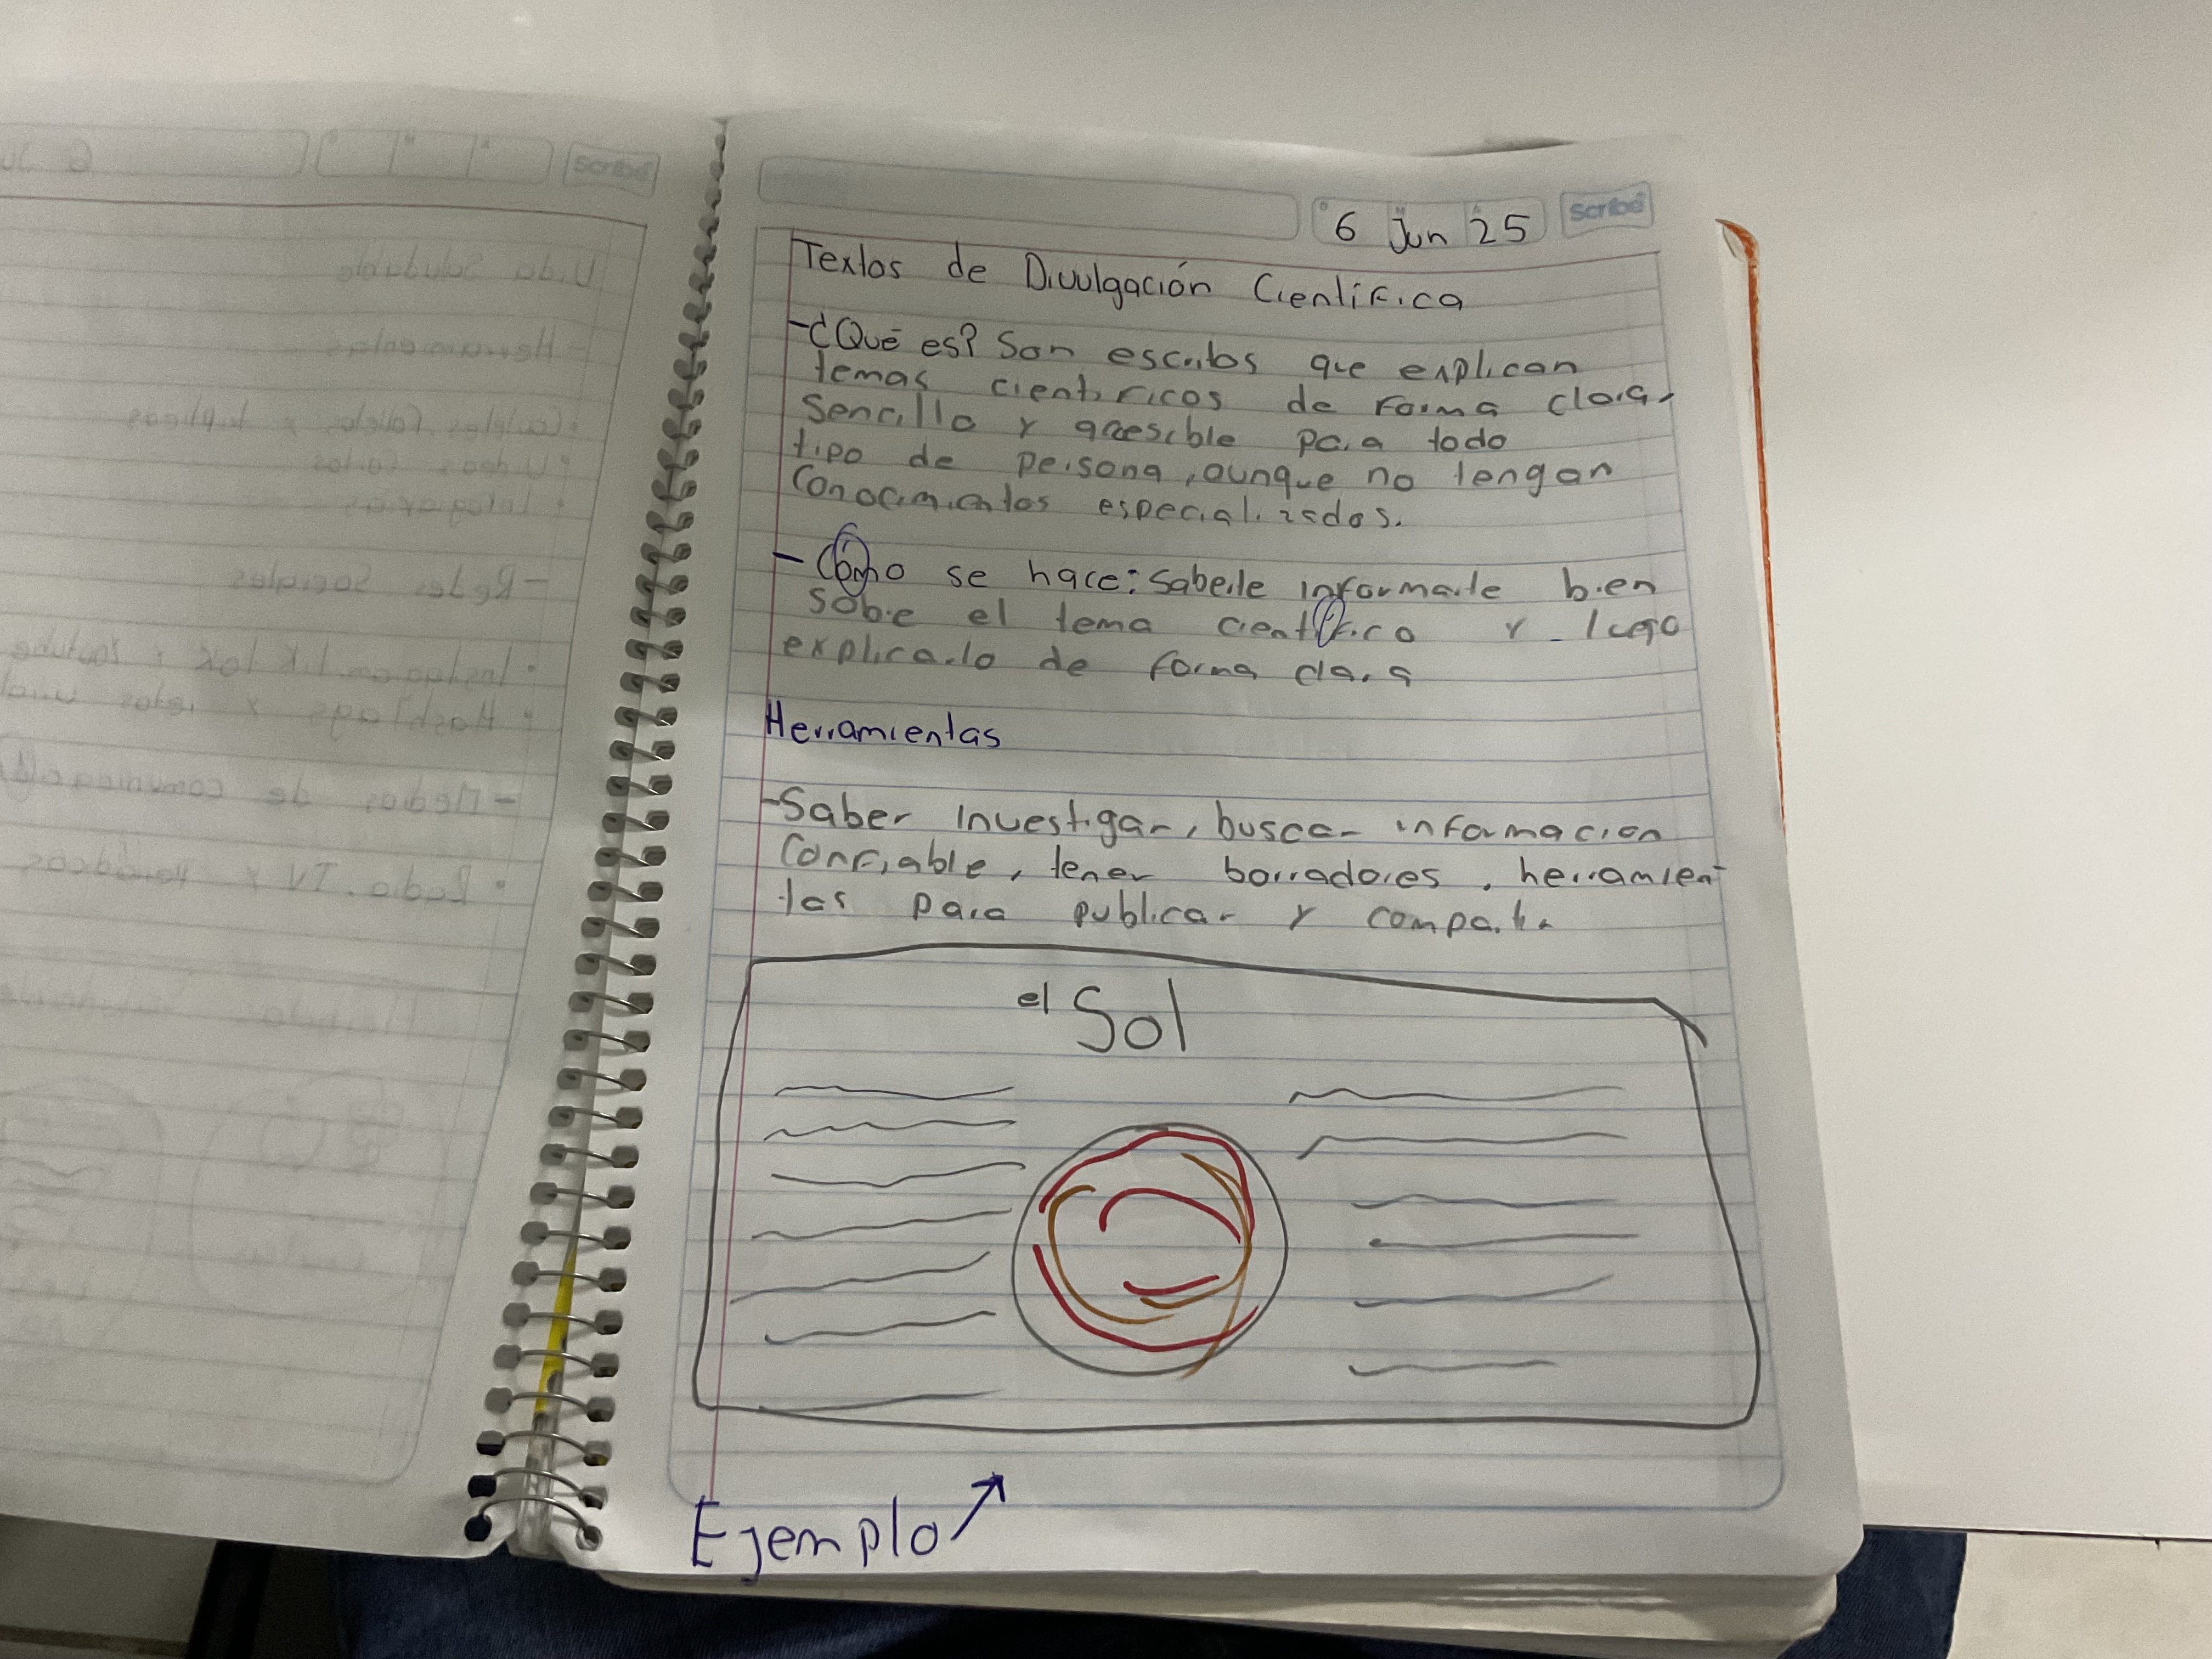 Scribe
6 Jun 25
Textos de Divulgación Científica
-¿Qué es? Son escritos que explican
temas científicos de forma clara,
sencilla y accesible para todo
tipo de persona, aunque no tengan
Conocimientos especializados.
- Cómo se hace: Saberle informarte bien
sobre el tema científico y luego
explicarlo de forma clara
Herramientas
-Saber investigar, buscar informacion
Confiable, tener borradores, herramien
tas para publicar y compartir
el Sol
Ejemplo